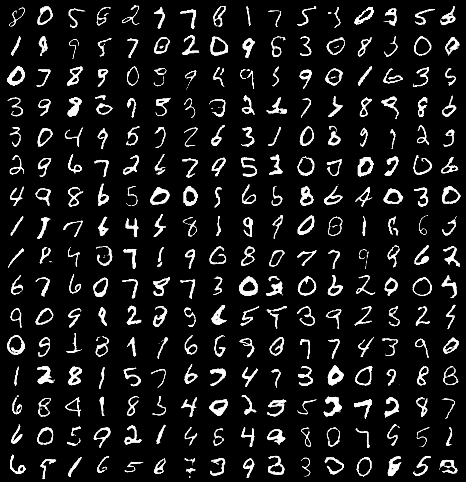 8 0 5 6 2 9 7 8 1 7 5 3 0 9 5 6
1 9 9 8 7 0 2 0 9 6 3 0 8 3 0 0
0 7 8 9 0 9 9 4 9 5 9 0 1 6 3 5
3 9 8 0 7 5 3 3 2 1 7 5 8 9 8 6
3 0 4 9 5 7 2 6 3 1 0 8 9 1 2 9
2 9 6 7 2 6 7 9 5 3 0 0 0 9 0 6
4 9 8 6 5 0 0 5 6 5 8 6 4 0 3 0
1 1 7 6 4 5 8 1 9 9 0 0 1 8 6 5
1 8 4 0 7 1 9 6 8 0 7 7 9 9 6 2
6 7 6 0 7 8 7 3 0 3 0 6 2 0 0 4
9 0 9 9 2 8 9 6 5 5 3 9 2 8 2 5
0 9 1 8 1 1 6 6 9 0 7 7 4 3 9 0
1 2 8 1 5 7 6 7 4 7 3 0 0 9 8 8
6 8 4 1 8 3 4 0 2 5 5 3 7 2 8 7
6 0 5 9 2 1 4 6 4 9 8 0 7 5 5 1
6 9 1 6 5 8 7 3 9 3 3 0 0 8 5 8